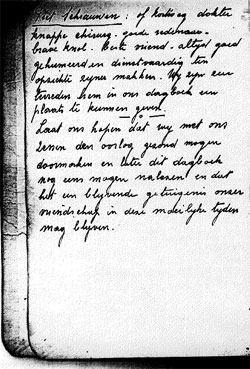 Piet Schrauwen: of kortweg dokter
knappe chirurg. goede redenaar.
brave knol. Beste vriend. altijd goed
gehumeerd en dienstvaardig ten
opzichte zijner makkers. Wij zijn zeer
tevreden hem in ons dagboek een
plaats te kunnen geven.
Laat ons hopen dat wij met ons
zeven den oorlog gezond mogen
doormaken en later dit dagboek
nog eens mogen nalezen en dat
het een blijvende getuigenis onzer
vriendschap in deze moeilijke tijden
mag blijven.